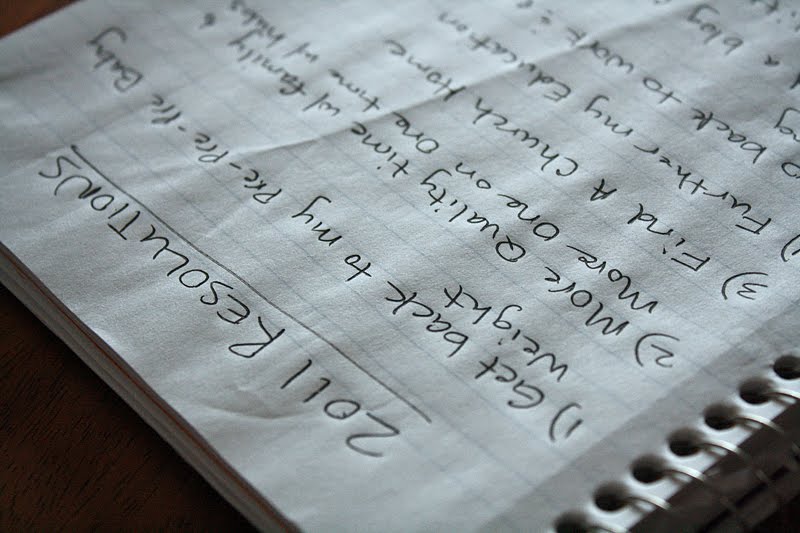 2011 RESOLUTIONS
1) Get back to my Pre-Pre-Pre Baby
weight
2) More Quality time w/ family &
More One on One time w/ hubs
3) Find A Church Home
Further my Education
back to work
a blog